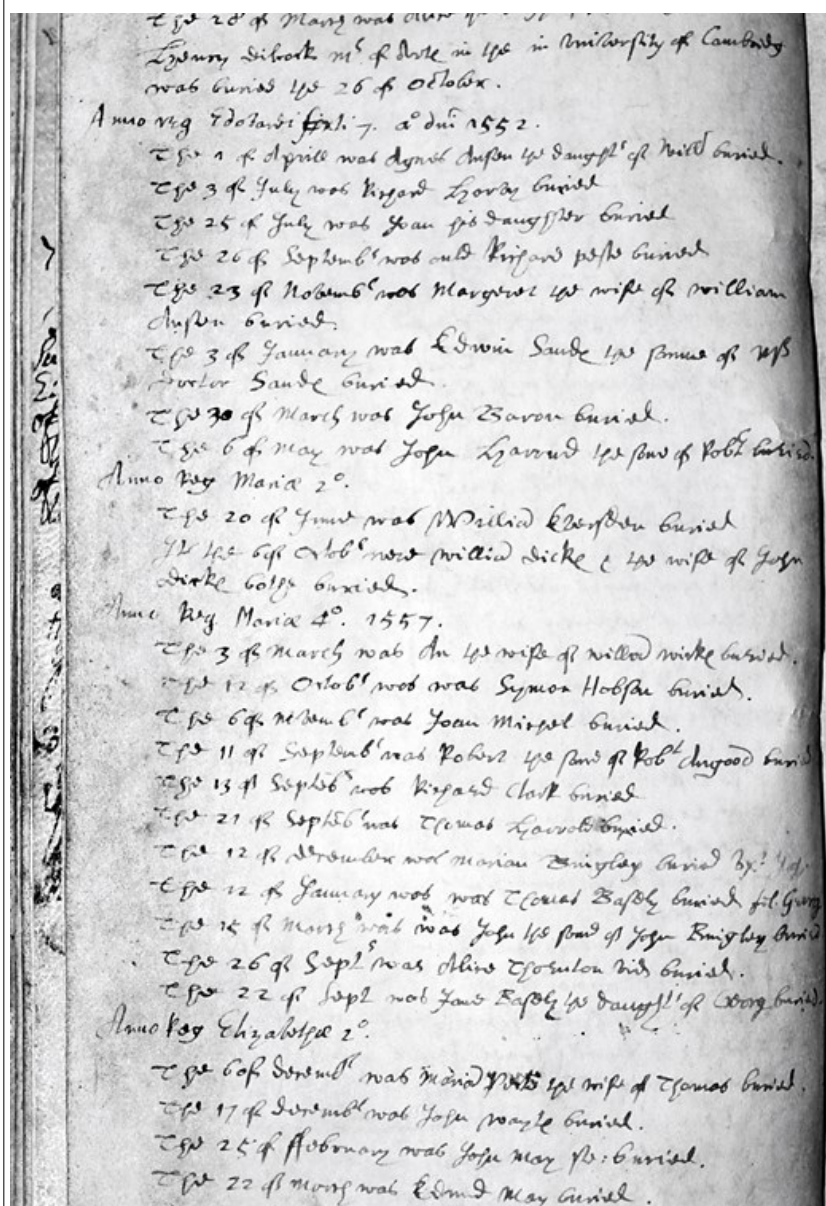 The 28 of March was Alice
Henry mr of Arte in the in University of Cambridg
was buried the 26 of October.
Anno reg Edwardi sexti 7. ao dni 1552.
The 1 of Aprill was Agnes Ansen the daughtr of Will buried.
The 3 of July was Richard buried
The 25 of July was Joan his daughter buried
The 26 of Septembr was ould Richard peste buried
The 23 of Novembr was Margeret the wife of william
Ansen buried.
The 3 of January was Edwin Sande the sonne of
Doctor Sande buried.
The 30 of March was John Baron buried.
The 6 of May was John the sone of Robt buried.
Anno Reg Mariæ 2o.
The 20 of June was Willia Eversden buried
It the 6 of Octobr were willia dicke & the wife of John
dicke bothe buried.
Anno Reg. Mariæ 4o. 1557.
The 3 of March was An the wife of willia buried.
The 12 of Octobr was was Symon Hobson buried.
The 6 of Novembr was Joan Michel buried.
The 11 of Septembr was Robert the sone of Robt Angood buried
The 13 of Septebr was Richard Clark buried
The 21 of Septebr was Thomas buried.
The 12 of december was Marian Bingley buried
The 12 of January was was Thomas Basely buried fil. Georg
The 15 of March was was John the sone of John Bingley buried
The 26 of Septr was Alice Thornton vid buried.
The 22 of Sept was Jane Basely the daughtr of Georg buried.
Anno Reg Elizabethæ 2o.
The 6 of decembr was Maria the wife of Thomas buried.
The 17 of decembr was John wayte buried.
The 25 of ffebruary was John May se: buried.
The 22 of March was Edmud May buried.